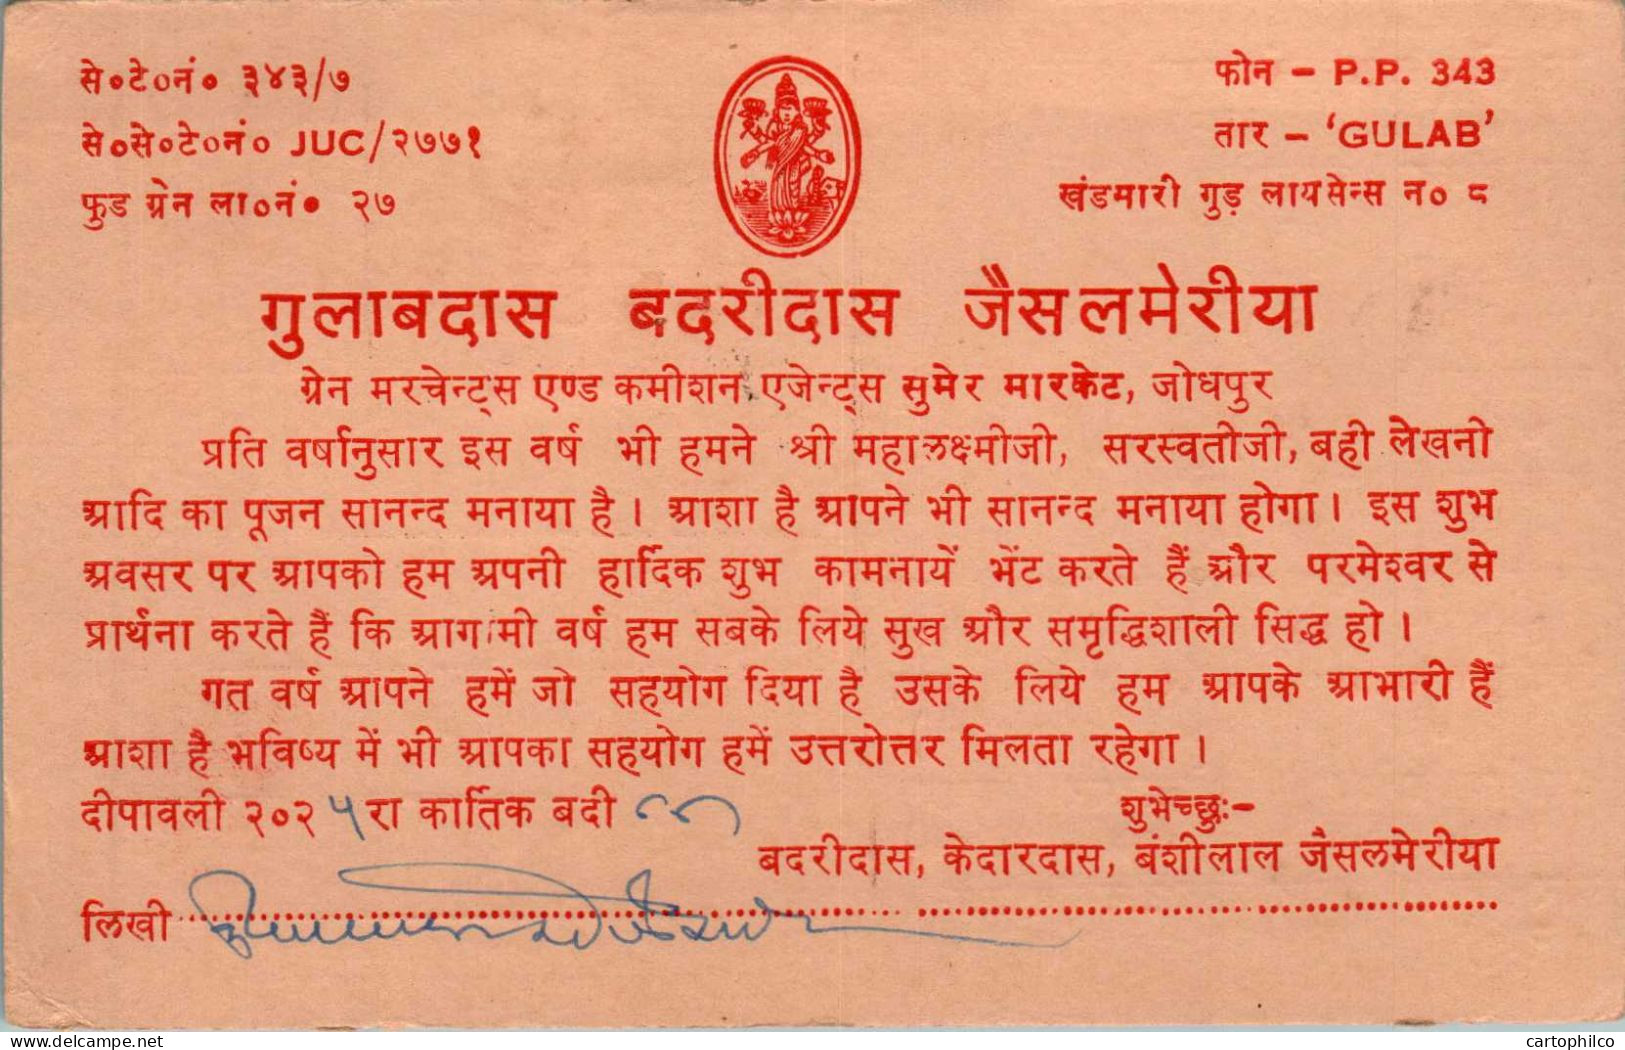 से०टे०नं० ३४३/७
फोन – P.P. 343
से०से०टे०नं० JUC/२७७१
तार – ‘GULAB’
फुड ग्रेन ला०नं० २७
खंडमारी गुड़ लायसेन्स न० ८
गुलाबदास बदरीदास जैसलमेरीया
ग्रेन मरचेन्ट्स एण्ड कमीशन एजेन्ट्स सुमेर मारकेट, जोधपुर
प्रति वर्षानुसार इस वर्ष भी हमने श्री महालक्ष्मीजी, सरस्वतीजी, बही लेखनी
आदि का पूजन सानन्द मनाया है। आशा है आपने भी सानन्द मनाया होगा। इस शुभ
अवसर पर आपको हम अपनी हार्दिक शुभ कामनायें भेंट करते हैं और परमेश्वर से
प्रार्थना करते हैं कि आगामी वर्ष हम सबके लिये सुख और समृद्धिशाली सिद्ध हो।
गत वर्ष आपने हमें जो सहयोग दिया है उसके लिये हम आपके आभारी हैं
आशा है भविष्य में भी आपका सहयोग हमें उत्तरोत्तर मिलता रहेगा।
दीपावली २०२५ रा कार्तिक बदी
शुभेच्छु:–
बदरीदास, केदारदास, बंशीलाल जैसलमेरीया
लिखी
cartophilco